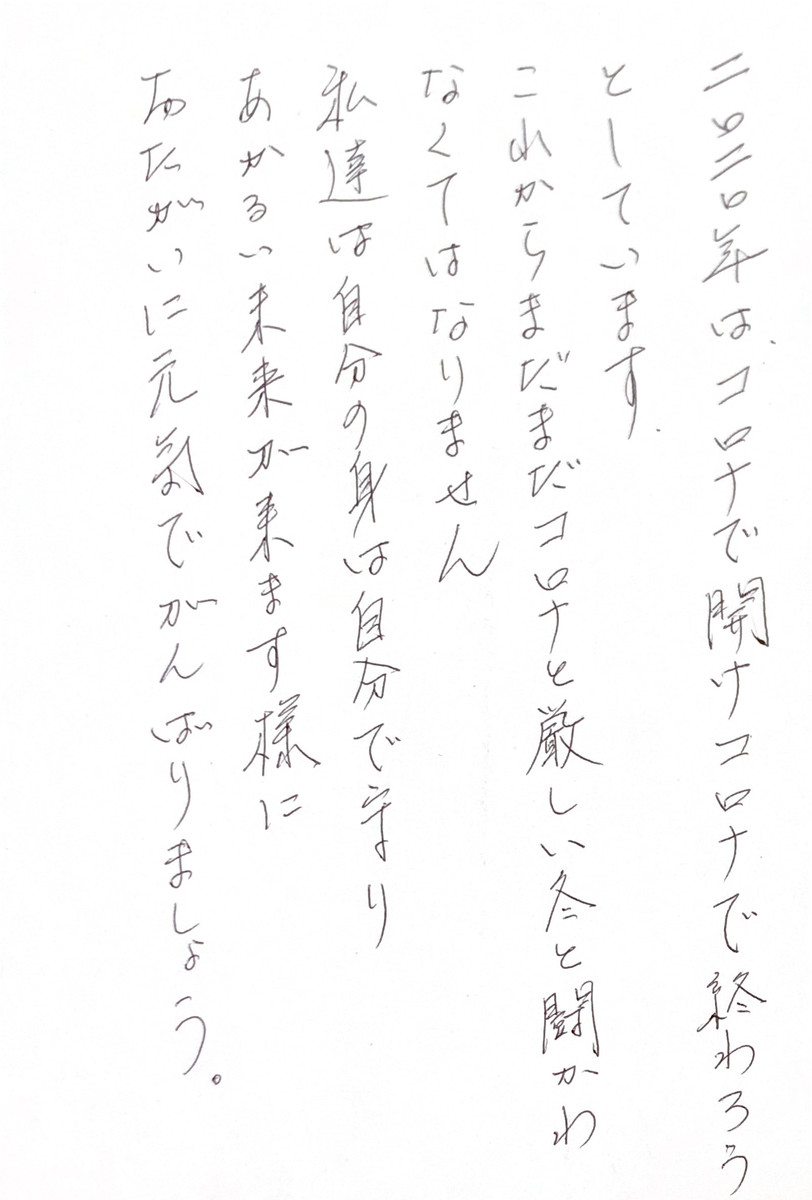 二〇二〇年は、コロナで開けコロナで終わろう
としています.
これからまだまだコロナと厳しい冬と闘かわ
なくてはなりません
私達は自分の身は自分で守り
あかるい未来が来ます様に
おたがいに元気でがんばりましょう。